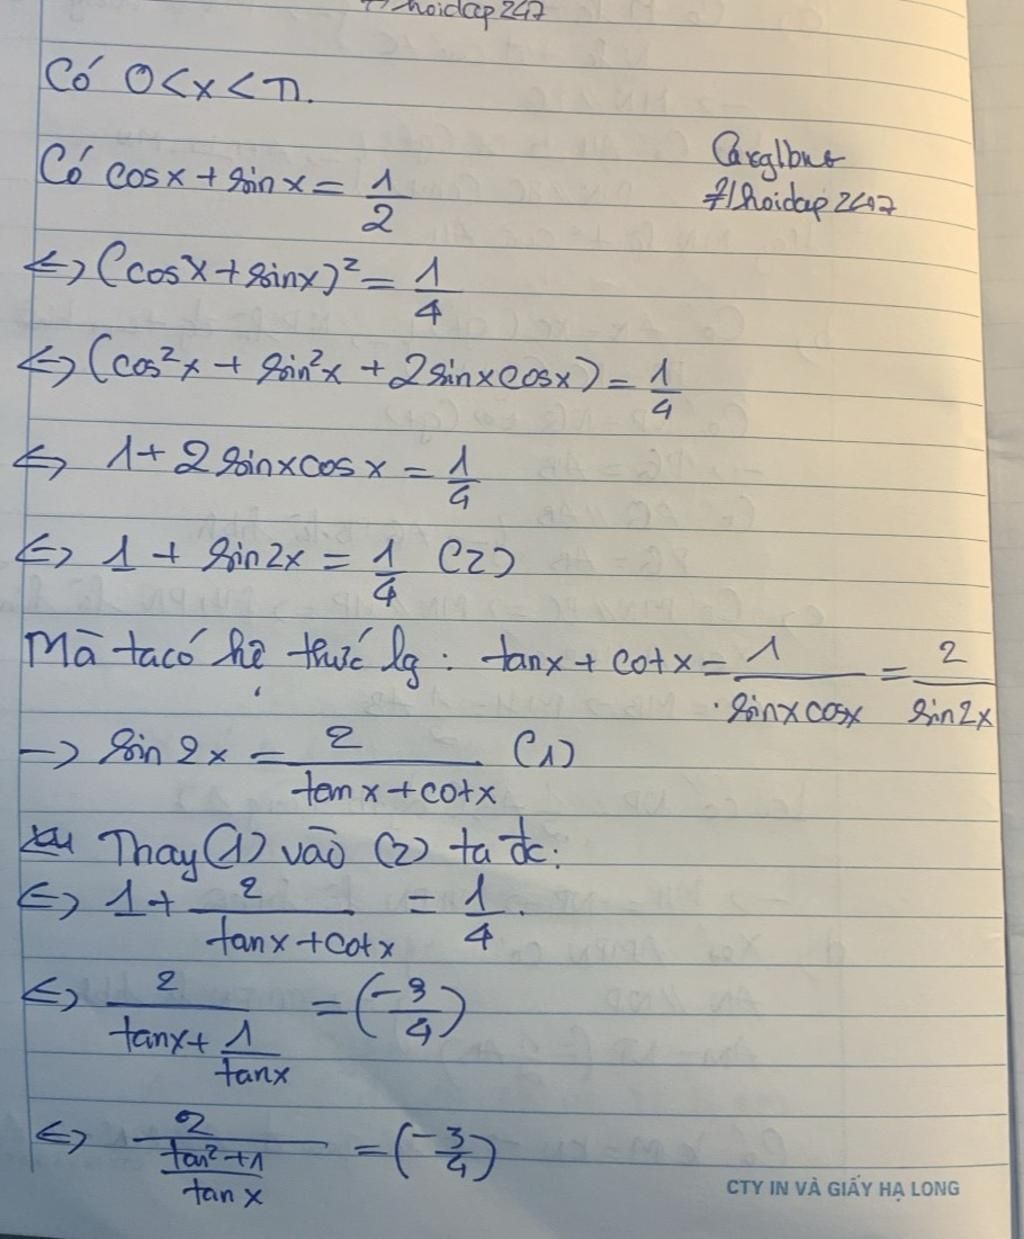 #/hoidap247
Có 0<x<π.
Có cosx + sinx = 1/2
#/hoidap247
<=> (cosx + sinx)² = 1/4
<=> (cos²x + sin²x + 2sinxcosx) = 1/4
<=> 1 + 2sinxcosx = 1/4
<=> 1 + sin2x = 1/4 (2)
Mà ta có hệ thức lg : tanx + cotx = 1/sinxcosx = 2/sin2x
-> sin2x = 2/(tanx + cotx) (1)
Thay (1) vào (2) ta đc:
<=> 1 + 2/(tanx + cotx) = 1/4.
<=> 2/(tanx + 1/tanx) = (-3/4)
<=> 2/((tan² + 1)/tanx) = (-3/4)
CTY IN VÀ GIẤY HẠ LONG